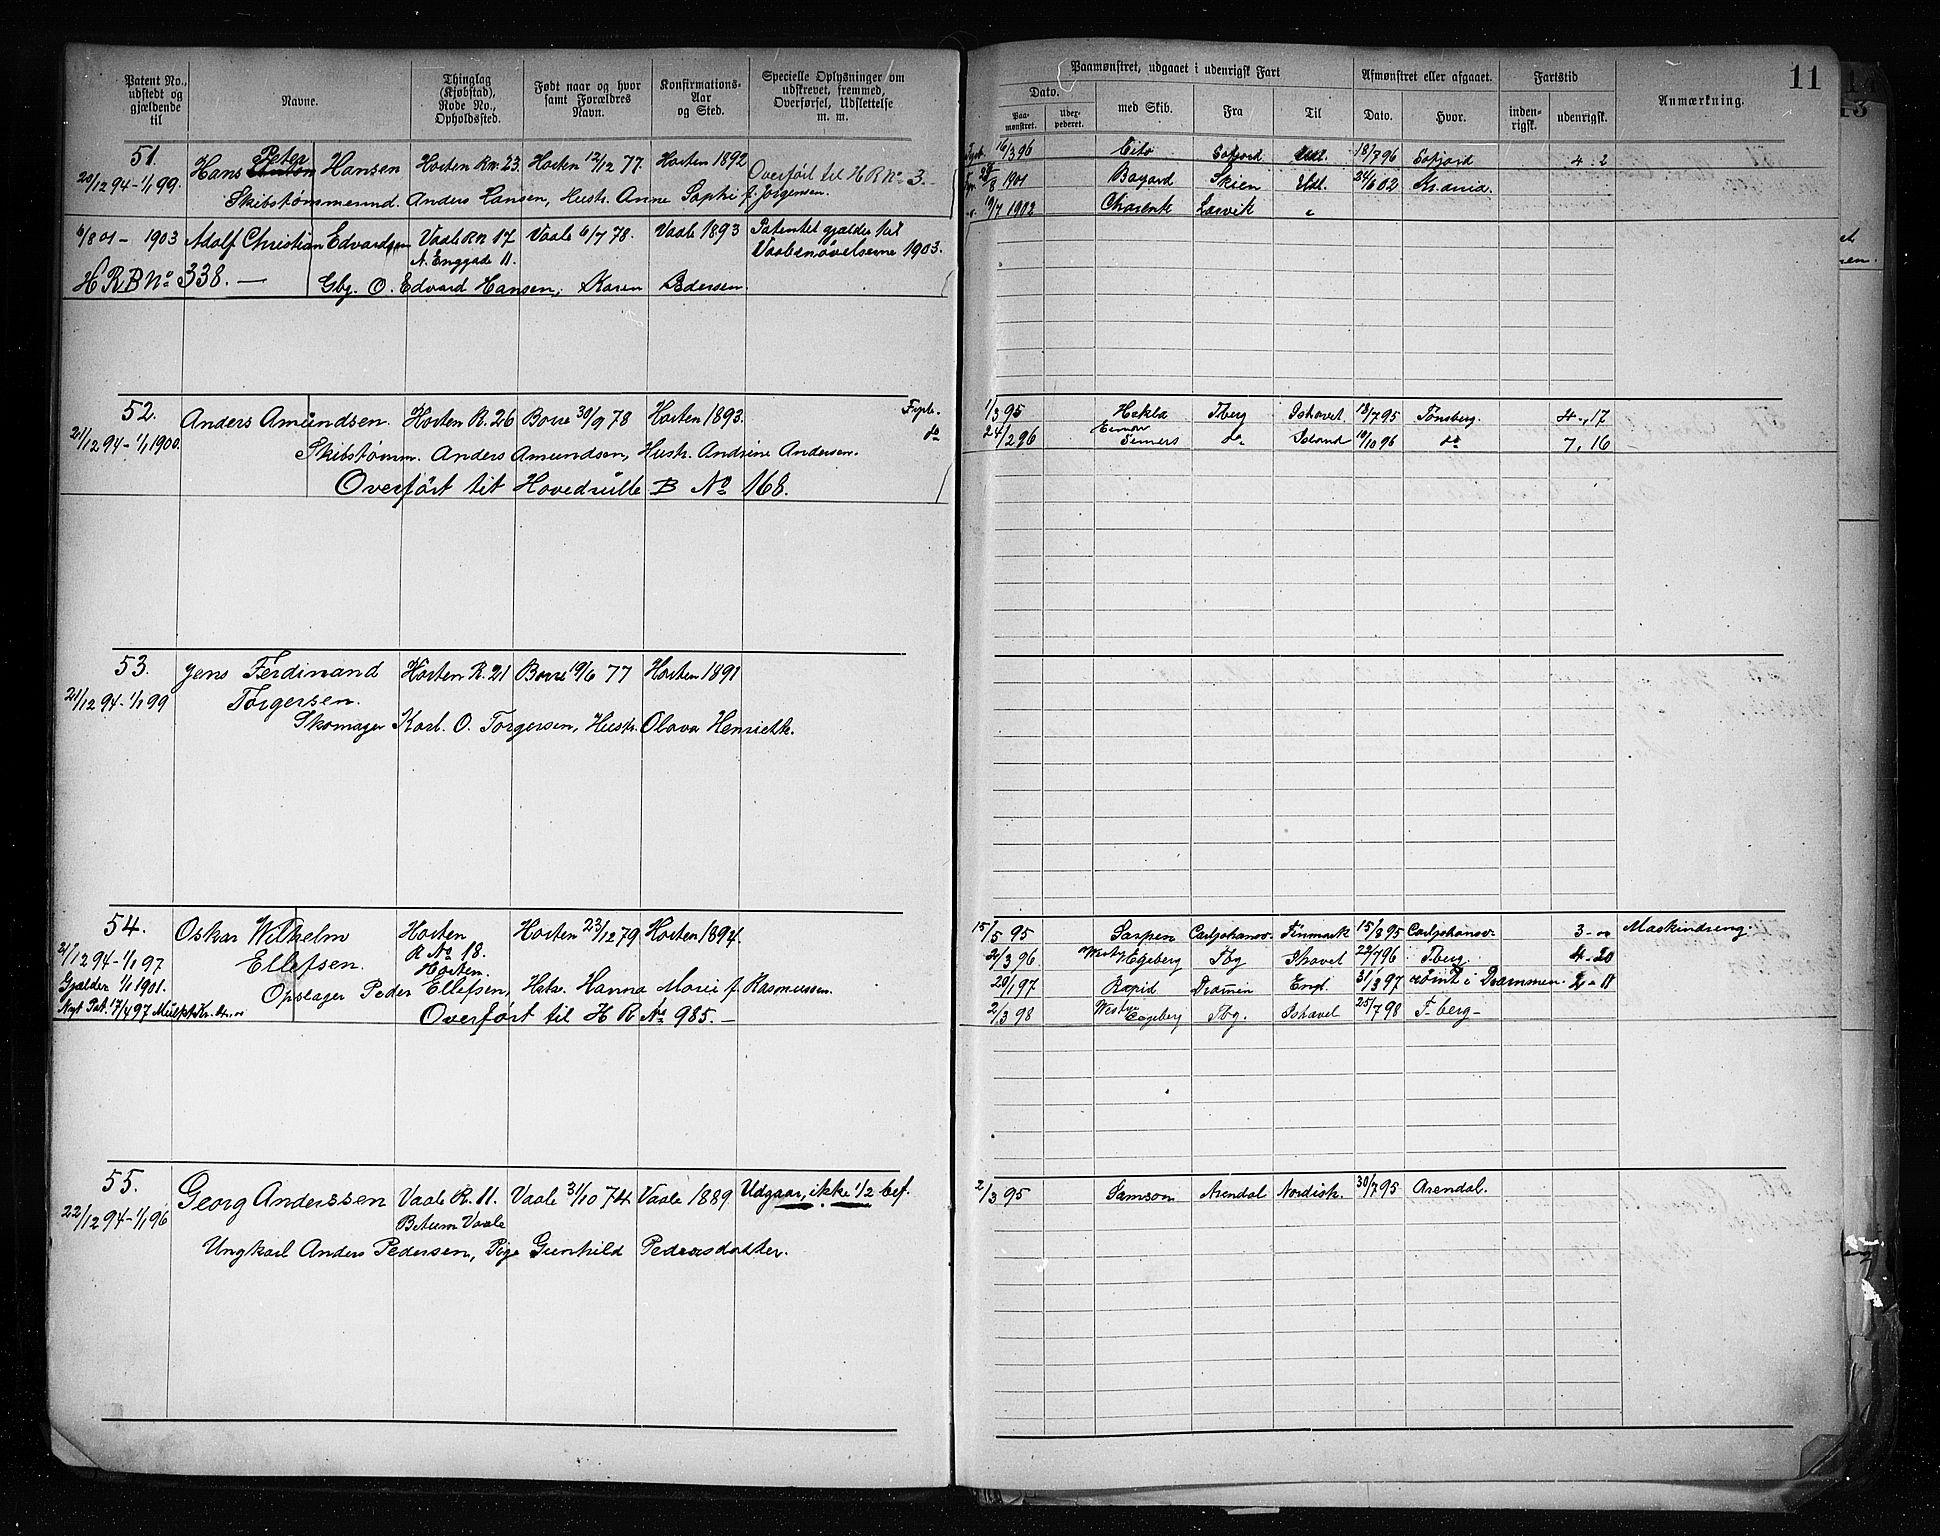 Patent No., udstedt og gjældende til
Navne.
Thinglag (Kjøbstad), Rode No., Opholdssted.
Født naar og hvor samt Forældres Navn.
Konfirmations- Aar og Sted.
Specielle Oplysninger om udskrevet, fremmed, Overførsel, Udslettelse m. m.
Paamønstret, udgaaet i udenrigsk Fart
Afmønstret eller afgaaet.
Fartstid
Anmærkning.
11
Dato.
Paa- mønstret.
Uder- pederet.
med Skib.
Fra
Til
Dato.
Hvor.
inden- rigsk.
udenrigsk.
51.
Peter
Hans Anton Hansen Horten Rn. 23. Horten 12/12 77. Horten 1892 Overført til H R No 3.
20/12 94 - 1/1 99.
Skibstømmermd. Anders Hansen, Hustr. Anne Sophi f. Jørgensen.
6/8 01 - 1903 Adolf Christian Edvardsen Vaale Rn 17 Vaale 6/7 78. Vaale 1893 Patentet gjælder til
N. Enggade 11. Vaabenøvelserne 1903.
H R B No 338. — Gbg. O. Edvard Hansen, Karen Pedersen.
16/3 96 Cito Eofjord Udl. 18/7 96 Eofjord 4 2
28/8 1901 Bayard Skien Udl. 24/6 02 Krania.
19/7 1902 Charente Larvik "
52.
Anders Amundsen. Horten R. 26 Borre 30/9 78 Horten 1893.
21/12 94 - 1/1 1900.
do
Skibstømm. Anders Amundsen, Hustr. Andrine Andersen.
Overført til Hovedrulle B No 168.
1/3 95 Hekla Tberg Ishavet 13/7 95 Tønsberg 4 - 17
24/2 96 do Island 10/10 96 do 7. 16
53.
Jens Ferdinand Horten R. 21 Borre 19/6 77 Horten 1891
21/12 94 - 1/1 99
Torgersen.
Skomager Karl O. Torgersen, Hustr. Olava Henriette.
54.
Oskar Wilhelm Horten Horten 23/12 79 Horten 1894.
21/12 94 - 1/1 97 R No 18.
Ellefsen. Horten.
Gjælder 1/1 1901.
Opslager Peder Ellefsen, Hstr. Hanna Marie f. Rasmussen.
Nyt Pat. 17/4 97
Overført til H R No 985. —
15/5 95 Sarpen Carljohansv. Finmark 15/8 95 Carljohansv. 3 - " Maskindreng.
2/3 96. Egeberg Tbg Ishavet 22/7 96 Tberg. 4 - 20
20/1 97 Rapid Dramen Engl. 31/3 97 rømt i Drammen. 2 - 11
2/3 98 Egeberg Tbg. Ishavet 25/7 98 T-berg -
55.
Georg Anderssen Vaale R. 11. Vaale 31/10 74. Vaale 1889 Udgaar, ikke 1/2 bef.
22/12 94 - 1/1 96
Vaale
Ungkarl Anders Pedersen, Pige Gunhild Pedersdatter.
2/3 95 Samson Arendal Nordisk. 30/7 95 Arendal.